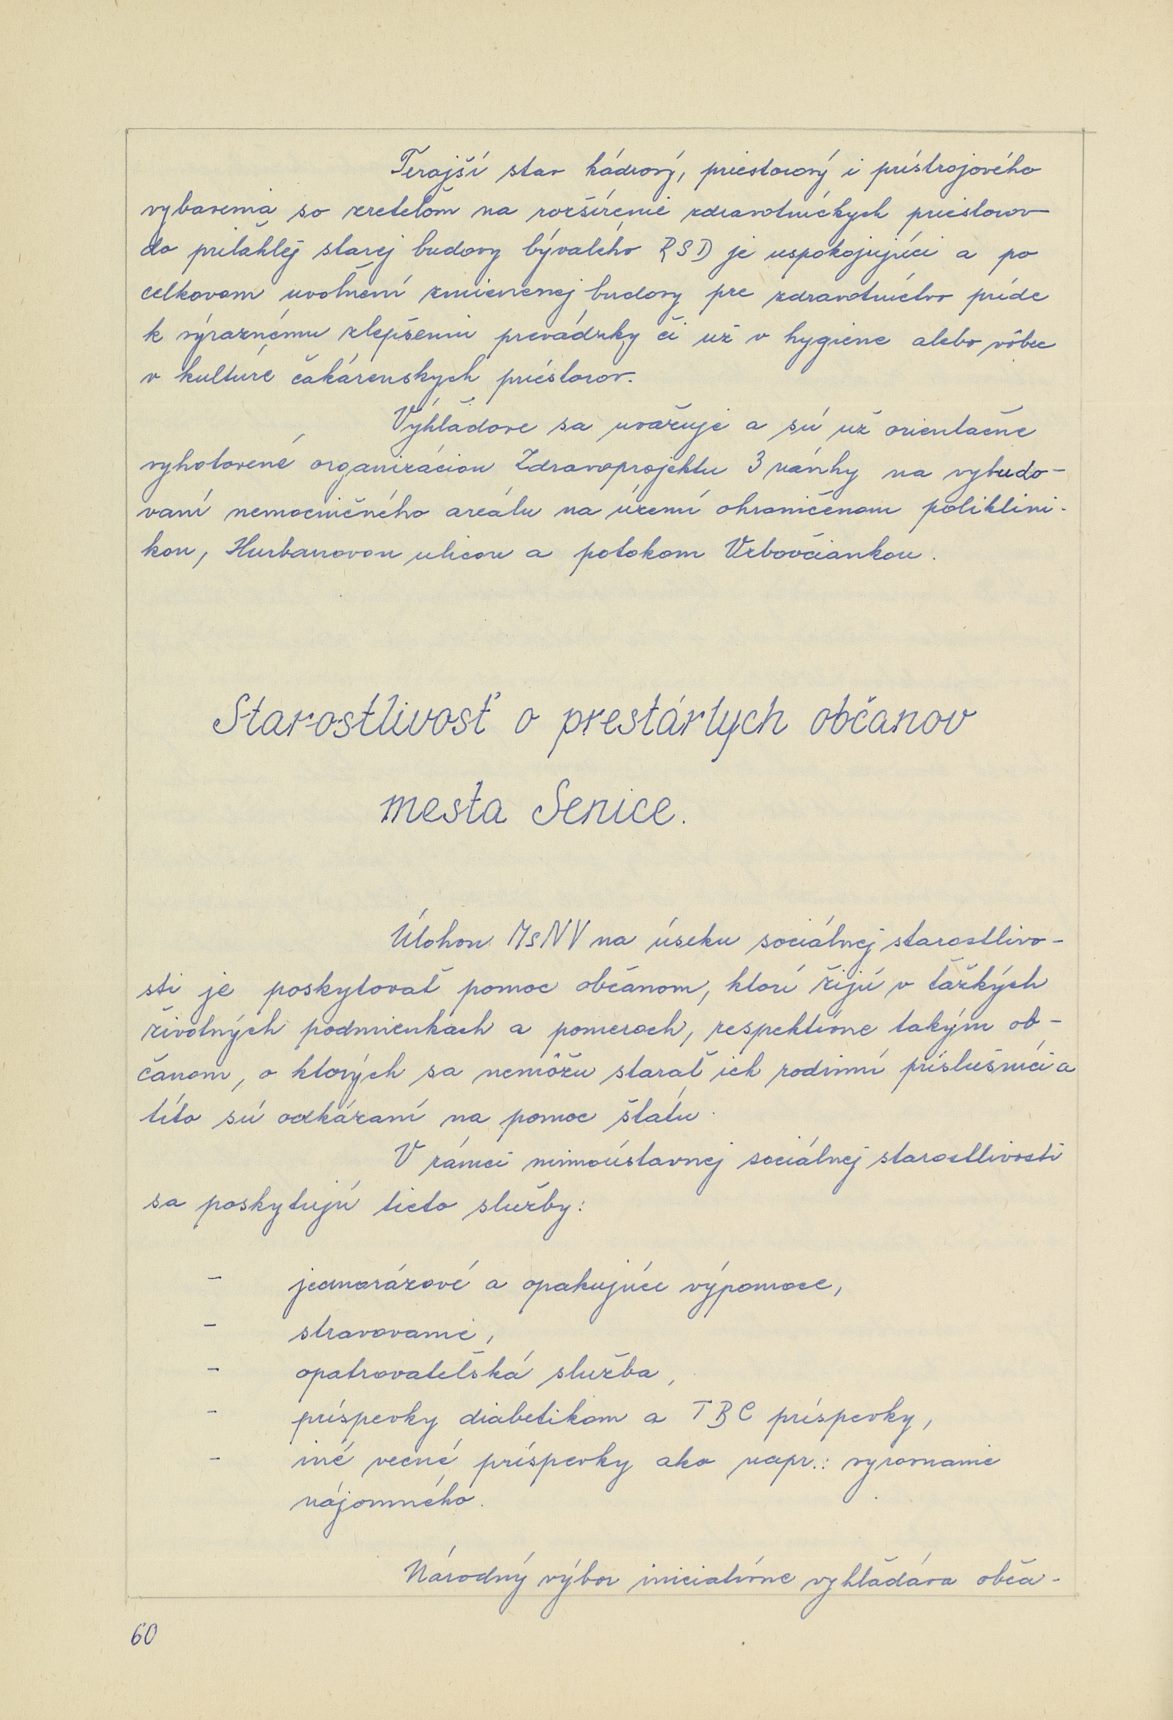 Terajší stav kádrový, priestorový i prístrojového
vybavenia so zreteľom na rozšírenie zdravotníckych priestorov
do priľahlej starej budovy bývalého RSD je uspokojujúci a po
celkovom uvoľnení zmienenej budovy pre zdravotníctvo príde
k výraznému zlepšeniu prevádzky či už v hygiene alebo vôbec
v kultúre čakárenských priestorov.
Výhľadove sa uvažuje a sú už orientačne
vyhotovené organizáciou Zdravoprojektu 3 návrhy na vybudo-
vaní nemocničného areálu na území ohraničenom poliklini-
kou, Hurbanovou ulicou a potokom Vrbovčiankou.
Starostlivosť o prestárlych občanov
mesta Senice.
Úlohou MsNV na úseku sociálnej starostlivo-
sti je poskytovať pomoc občanom, ktorí žijú v ťažkých
životných podmienkach a pomeroch, respektívne takým ob-
čanom, o ktorých sa nemôžu starať ich rodinní príslušníci a
títo sú odkázaní na pomoc štátu.
V rámci mimoústavnej sociálnej starostlivosti
sa poskytujú tieto služby:
- jednorázové a opakujúce výpomoce,
- stravovanie,
- opatrovateľská služba,
- príspevky diabetikom a TBC príspevky,
- iné vecné príspevky ako napr.: vyrovnanie
nájomného.
Národný výbor iniciatívne vyhľadáva obča-
60